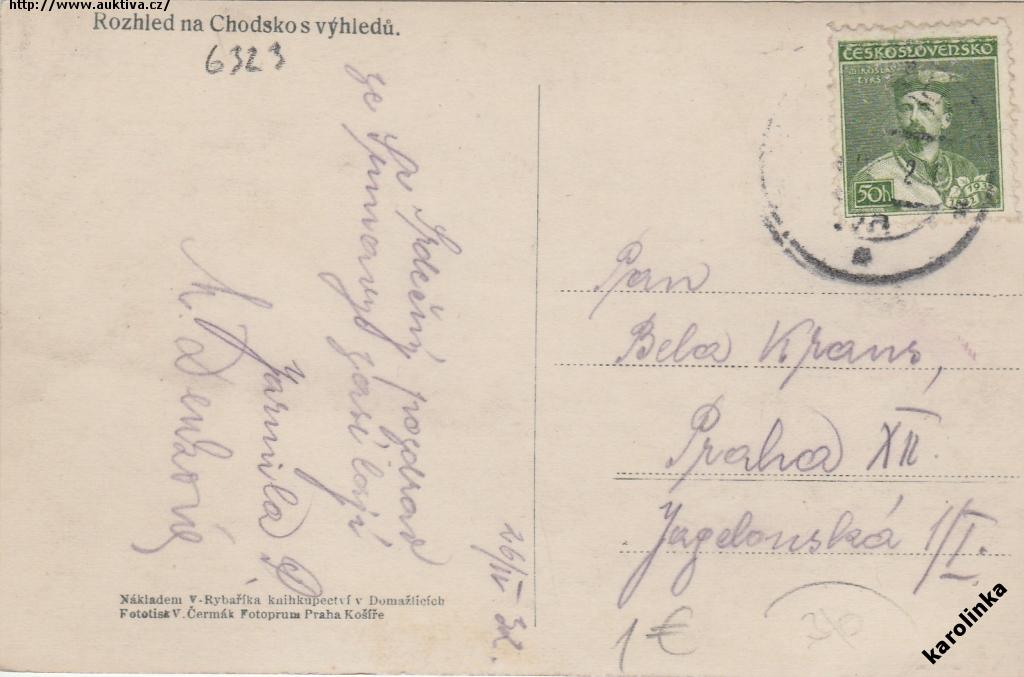 http://www.auktiva.cz/
Rozhled na Chodsko s výhledů.
6323
ČESKOSLOVENSKO
MIROSLAV
TYRŠ
50h
Srdečný pozdrav
ze Šumavy zasílají
Jarmila D
26/IV 32.
Pan
Bela Kraus,
Praha XII.
Jagelonská 1/I.
Nákladem V-Rybaříka knihkupectví v Domažlicích
Fototisk V. Čermák Fotoprum Praha Košíře
1 €
30
karolinka